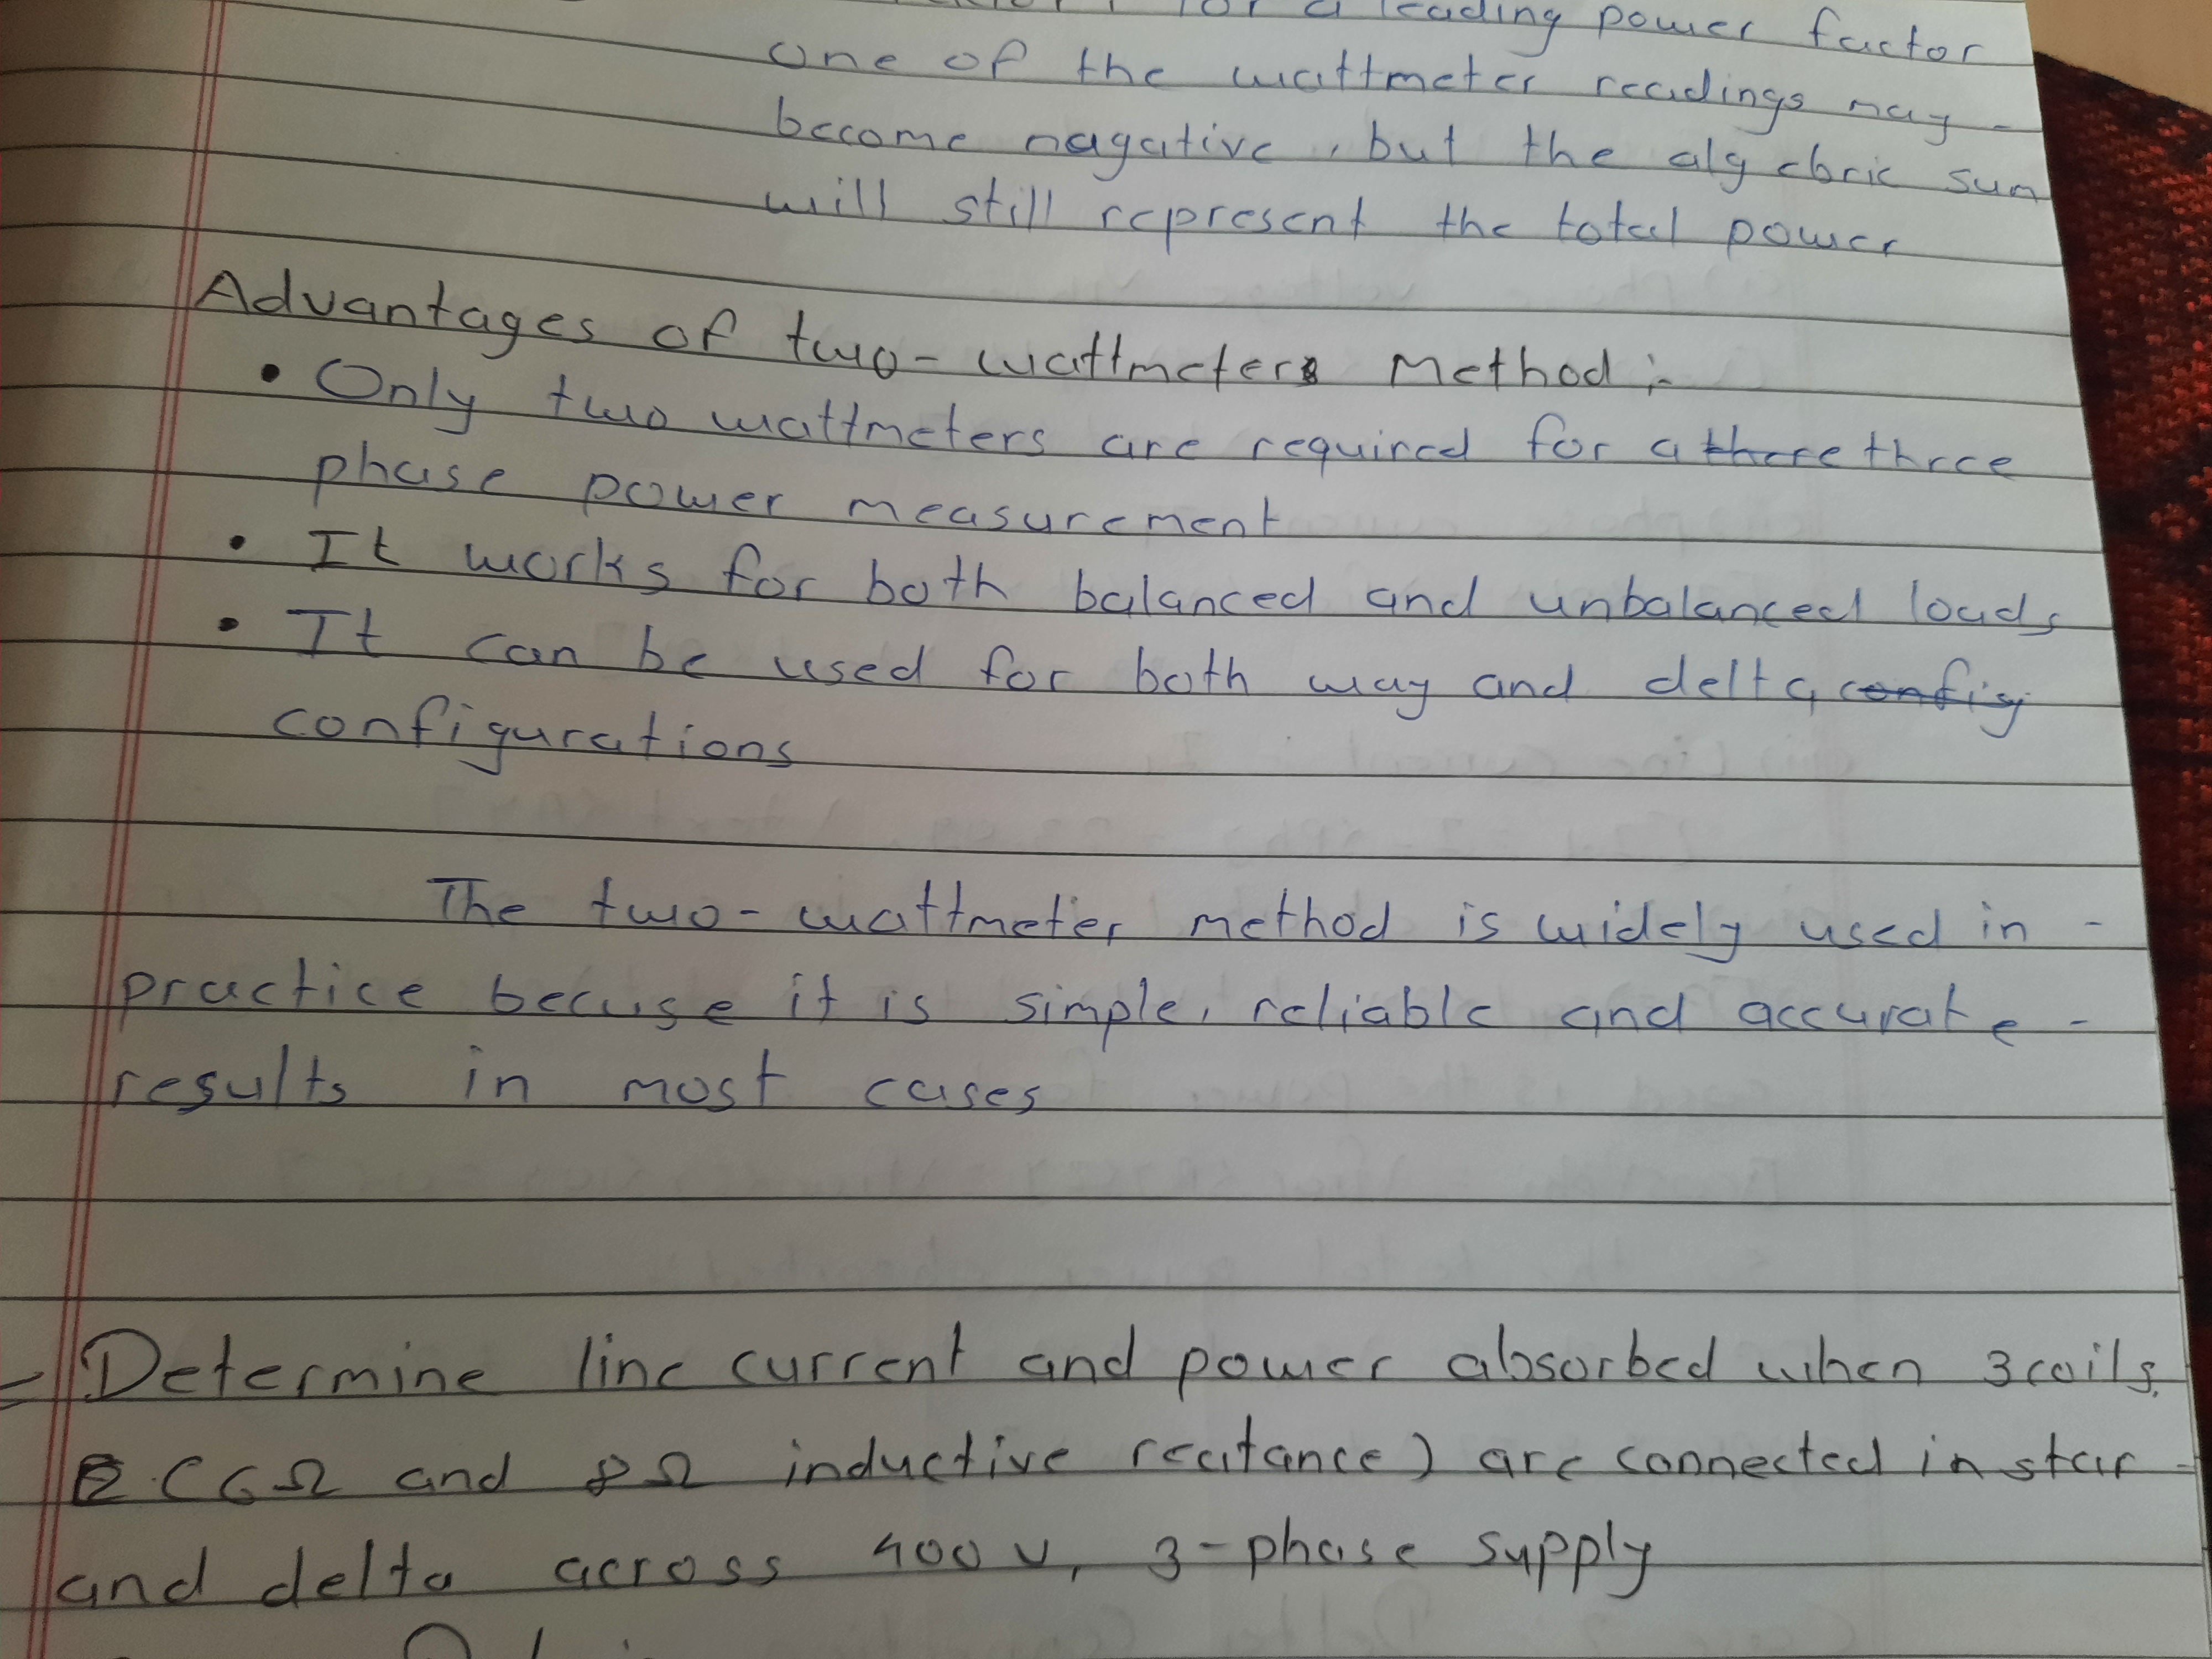 for a leading power factor
one of the wattmeter readings may
become nagative, but the algebric sum
will still represent the total power
Advantages of two-wattmeter method :-
• Only two wattmeters are required for a three
phase power measurement
• It works for both balanced and unbalanced loads
• It can be used for both way and delta
configurations
The two-wattmeter method is widely used in -
practice becuse it is simple, reliable and accurate -
results in most cases
Determine line current and power absorbed when 3 coils
(6Ω and 8Ω inductive reatance) are connected in star -
and delta across 400 v, 3-phase supply